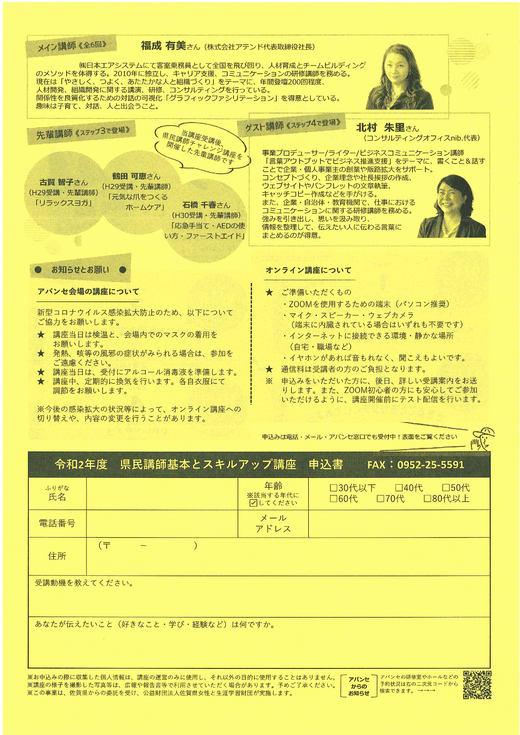 メイン講師《全6回》
福成 有美さん（株式会社アテンド代表取締役社長）
㈱日本エアシステムにて客室乗務員として全国を飛び回り、人材育成とチームビルディング
のメソッドを体得する。2010年に独立し、キャリア支援、コミュニケーションの研修講師を務める。
現在は「やさしく、つよく、あたたかな人と組織づくり」をテーマに、年間登壇200回程度、
人材開発、組織開発に関する講演、研修、コンサルティングを行っている。
関係性を良質化するための対話の可視化「グラフィックファシリテーション」を得意としている。
趣味は子育て、対話、人と出会うこと。
先輩講師《ステップ3で登場》
当講座受講後、
県民講師チャレンジ講座を
開催した先輩講師です
古賀 智子さん
（H29受講・先輩講師）
「リラックスヨガ」
鶴田 可恵さん
（H29受講・先輩講師）
「元気な爪をつくる
ホームケア」
石橋 千春さん
（H30受講・先輩講師）
「応急手当て・AEDの使
い方・ファーストエイド」
ゲスト講師《ステップ4で登場》
北村 朱里さん
（コンサルティングオフィスnib.代表）
事業プロデューサー/ライター/ビジネスコミュニケーション講師
「言葉アウトプットでビジネス推進支援」をテーマに、書くこと&話す
ことで企業・個人事業主の創業や販路拡大をサポート。
コンセプトづくり、企業理念や社長挨拶の作成、
ウェブサイトやパンフレットの文章執筆、
キャッチコピー作成などを手がける。
また、企業・自治体・教育機関で、仕事における
コミュニケーションに関する研修講師を務める。
強みを引き出し、思いを汲み取り、
情報を整理して、伝えたい人に伝わる言葉に
まとめるのが得意。
● お知らせとお願い ●
アバンセ会場の講座について
新型コロナウイルス感染拡大防止のため、以下について
ご協力をお願いします。
★ 講座当日は検温と、会場内でのマスクの着用を
お願いします。
★ 発熱、咳等の風邪の症状がみられる場合は、参加を
ご遠慮ください。
★ 講座当日は、受付にアルコール消毒液を準備します。
★ 講座中、定期的に換気を行います。各自衣服にて
調節をお願いします。
※今後の感染拡大の状況等によって、オンライン講座への
切り替えや、内容の変更を行うことがあります。
オンライン講座について
★ ご準備いただくもの
・ZOOMを使用するための端末（パソコン推奨）
・マイク・スピーカー・ウェブカメラ
（端末に内臓されている場合はいずれも不要です）
・インターネットに接続できる環境・静かな場所
（自宅・職場など）
・イヤホンがあれば音もれなく、聞こえもよいです。
★ 通信料は受講者の方のご負担となります。
※ 申込みをいただいた方に、後日、詳しい受講案内をお送
りします。また、ZOOM初心者の方にも安心してご参加
いただけるように、講座開催前にテスト配信を行います。
申込みは電話・メール・アバンセ窓口でも受付中！表面をご覧ください
令和2年度 県民講師基本とスキルアップ講座 申込書 FAX：0952-25-5591
ふりがな
氏名
年齢
※該当する年代に
☑してください
□30代以下 □40代 □50代
□60代 □70代 □80代以上
電話番号
メール
アドレス
住所
（〒 － ）
受講動機を教えてください。
あなたが伝えたいこと（好きなこと・学び・経験など）は何ですか。
※お申込みの際に収集した個人情報は、講座の運営のみに使用し、それ以外の目的に使用することはありません。
※講座の様子を撮影した写真等は、広報や報告書等で利用させていただく場合があります。予めご了承ください。
※この事業は、佐賀県からの委託を受け、公益財団法人佐賀県女性と生涯学習財団が実施します。
アバンセ
からの
お知らせ
アバンセの研修室やホールなどの
予約状況は右の二次元コードから
検索できます。 →→→